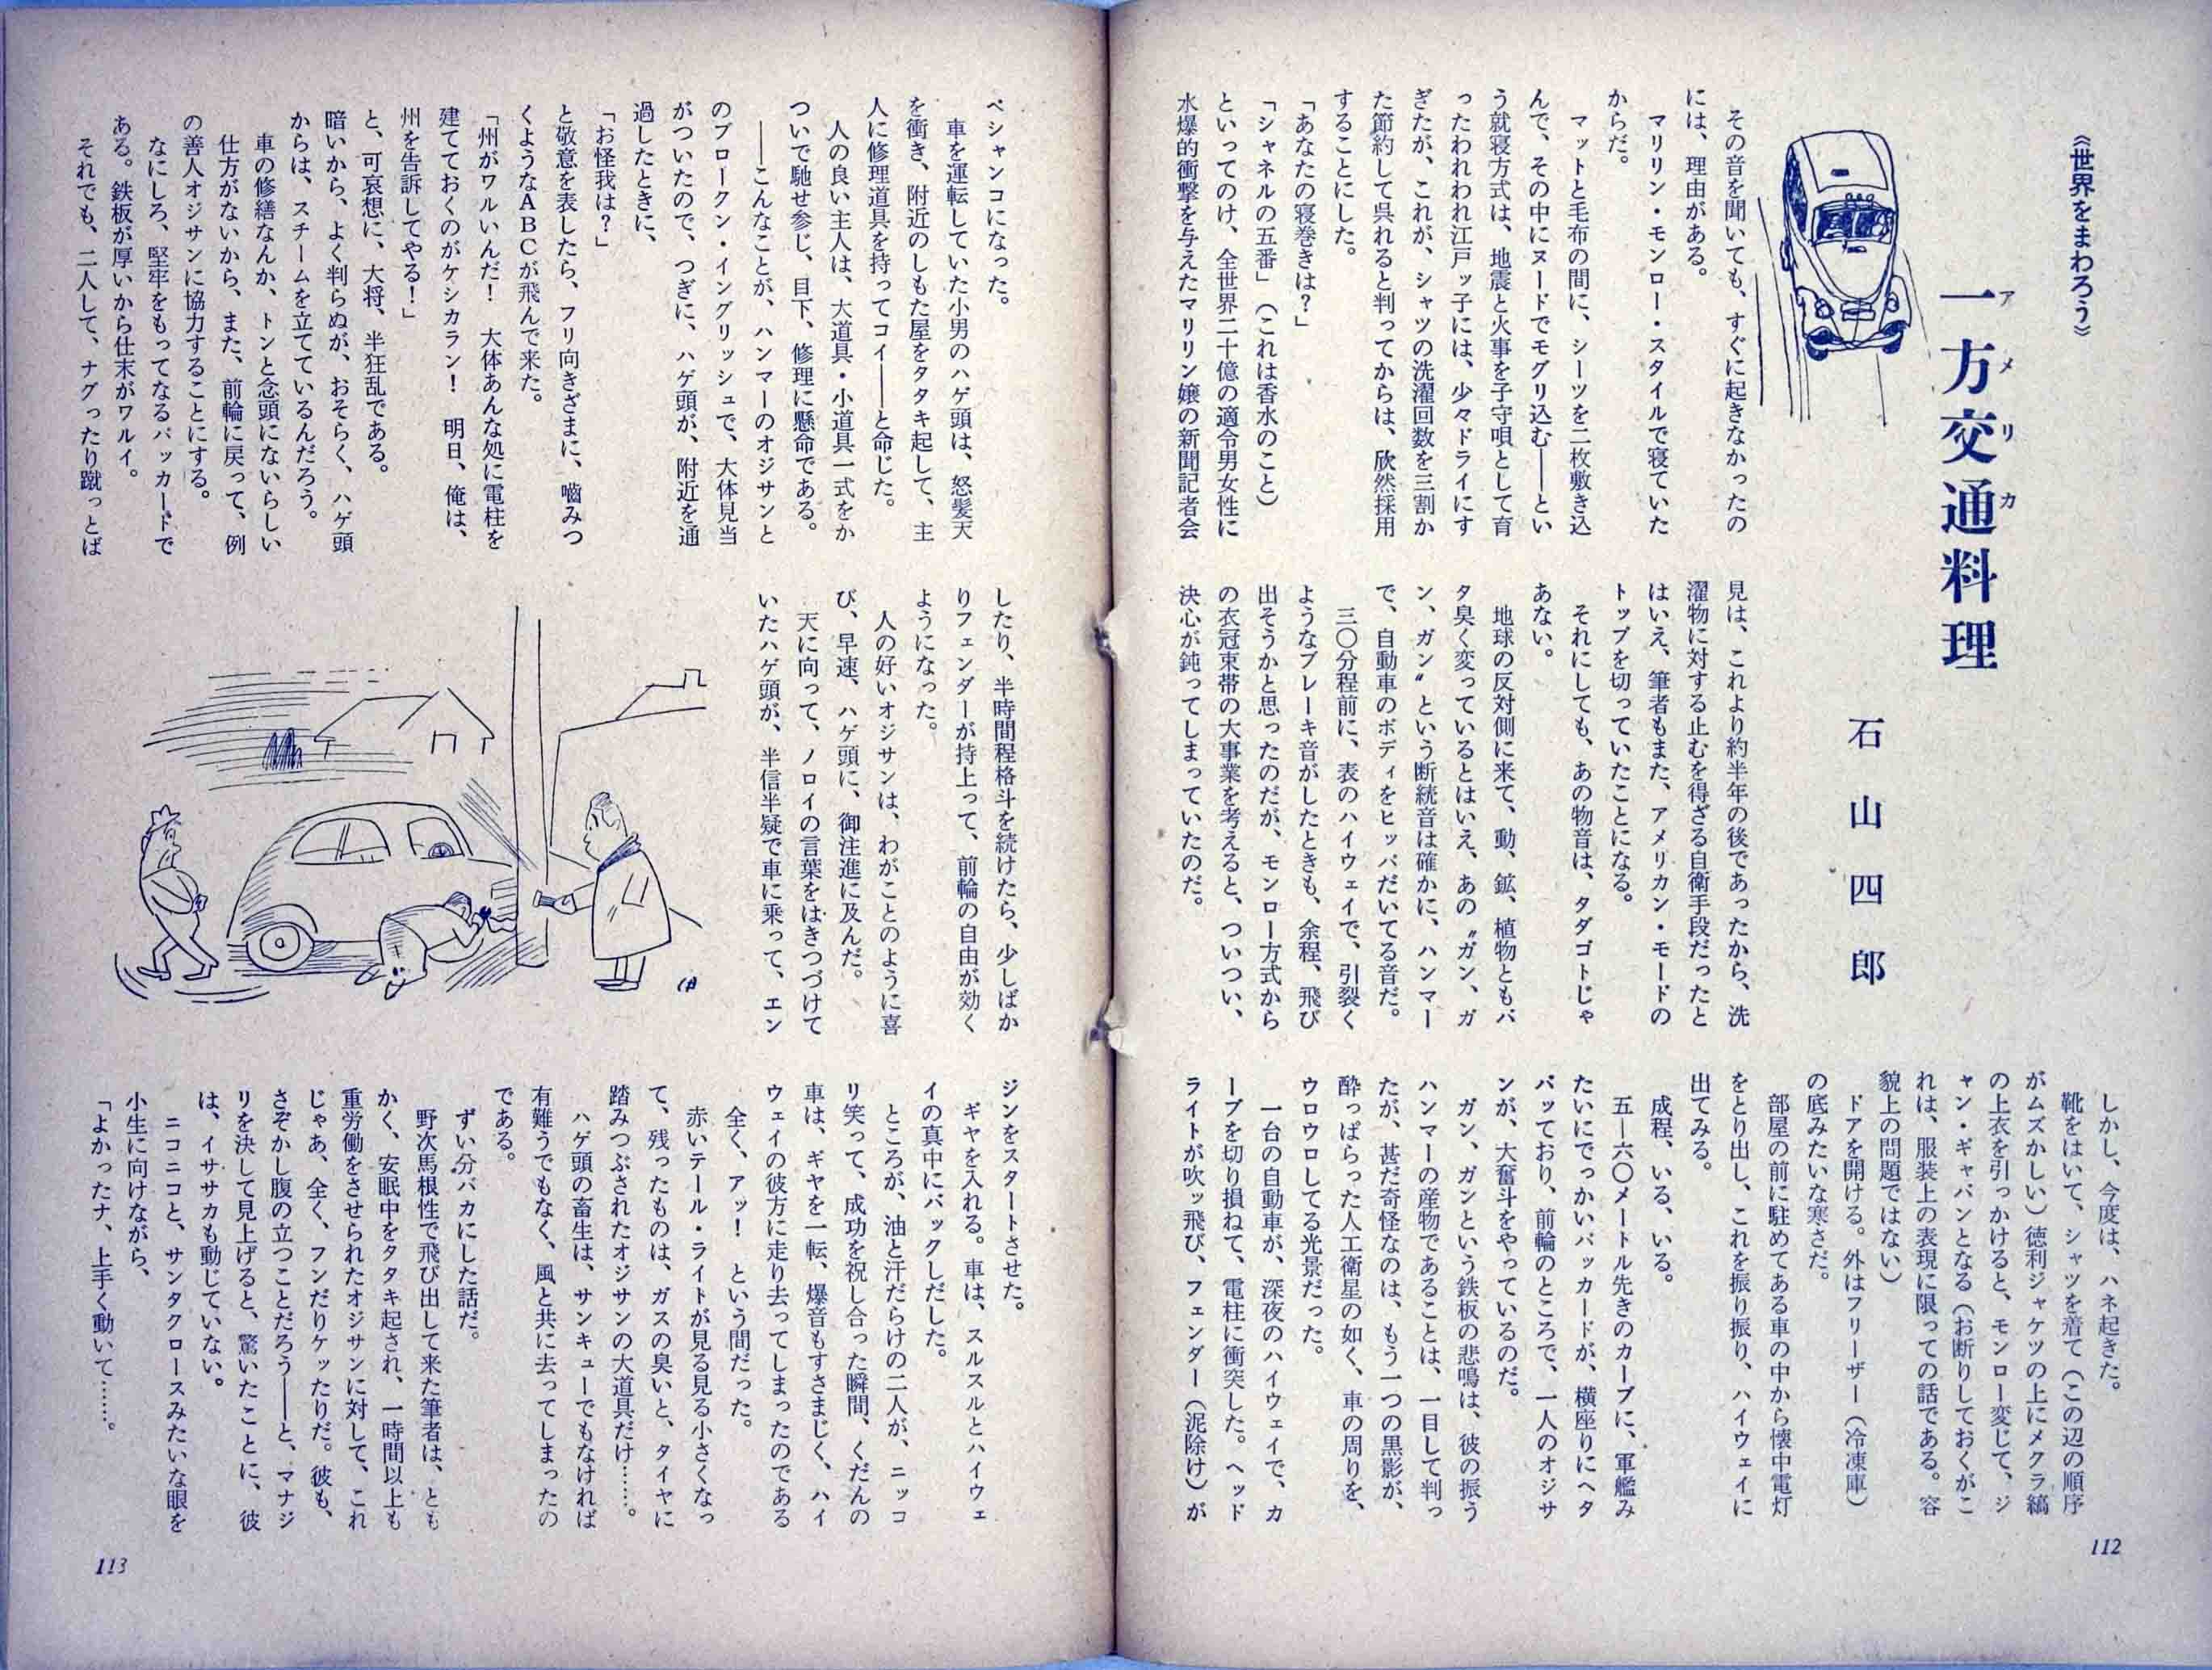 《世界をまわろう》
一方交通料理
アメリカ
石山四郎
その音を聞いても、すぐに起きなかったの
には、理由がある。
マリリン・モンロー・スタイルで寝ていた
からだ。
マットと毛布の間に、シーツを二枚敷き込
んで、その中にヌードでモグリ込む――とい
う就寝方式は、地震と火事を子守唄として育
ったわれわれ江戸ッ子には、少々ドライにす
ぎたが、これが、シャツの洗濯回数を三割か
た節約して呉れると判ってからは、欣然採用
することにした。
「あなたの寝巻きは?」
「シャネルの五番」(これは香水のこと)
といってのけ、全世界二十億の適令男女性に
水爆的衝撃を与えたマリリン嬢の新聞記者会
見は、これより約半年の後であったから、洗
濯物に対する止むを得ざる自衛手段だったと
はいえ、筆者もまた、アメリカン・モードの
トップを切っていたことになる。
それにしても、あの物音は、タダゴトじゃ
あない。
地球の反対側に来て、動、鉱、植物ともバ
タ臭く変っているとはいえ、あの〝ガン、ガ
ン、ガン〟という断続音は確かに、ハンマー
で、自動車のボディをヒッパだいてる音だ。
三〇分程前に、表のハイウェイで、引裂く
ようなブレーキ音がしたときも、余程、飛び
出そうかと思ったのだが、モンロー方式から
の衣冠束帯の大事業を考えると、ついつい、
決心が鈍ってしまっていたのだ。
しかし、今度は、ハネ起きた。
靴をはいて、シャツを着て(この辺の順序
がムズかしい)徳利ジャケツの上にメクラ縞
の上衣を引っかけると、モンロー変じて、ジ
ャン・ギャバンとなる(お断りしておくがこ
れは、服装上の表現に限っての話である。容
貌上の問題ではない)
ドアを開ける。外はフリーザー(冷凍庫)
の底みたいな寒さだ。
部屋の前に駐めてある車の中から懐中電灯
をとり出し、これを振り振り、ハイウェイに
出てみる。
成程、いる、いる。
五―六〇メートル先きのカーブに、軍艦み
たいにでっかいパッカードが、横座りにヘタ
バッており、前輪のところで、一人のオジサ
ンが、大奮斗をやっているのだ。
ガン、ガンという鉄板の悲鳴は、彼の振う
ハンマーの産物であることは、一目して判っ
たが、甚だ奇怪なのは、もう一つの黒影が、
酔っぱらった人工衛星の如く、車の周りを、
ウロウロしてる光景だった。
一台の自動車が、深夜のハイウェイで、カ
ーブを切り損ねて、電柱に衝突した。ヘッド
ライトが吹ッ飛び、フェンダー(泥除け)が
112
ペシャンコになった。
車を運転していた小男のハゲ頭は、怒髪天
を衝き、附近のしもた屋をタタキ起して、主
人に修理道具を持ってコイ――と命じた。
人の良い主人は、大道具・小道具一式をか
ついで馳せ参じ、目下、修理に懸命である。
――こんなことが、ハンマーのオジサンと
のブロークン・イングリッシュで、大体見当
がついたので、つぎに、ハゲ頭が、附近を通
過したときに、
「お怪我は?」
と敬意を表したら、フリ向きざまに、嚙みつ
くようなABCが飛んで来た。
「州がワルいんだ! 大体あんな処に電柱を
建てておくのがケシカラン! 明日、俺は、
州を告訴してやる!」
と、可哀想に、大将、半狂乱である。
暗いから、よく判らぬが、おそらく、ハゲ頭
からは、スチームを立てているんだろう。
車の修繕なんか、トンと念頭にないらしい
仕方がないから、また、前輪に戻って、例
の善人オジサンに協力することにする。
なにしろ、堅牢をもってなるパッカードで
ある。鉄板が厚いから仕末がワルイ。
それでも、二人して、ナグったり蹴っとば
したり、半時間程格斗を続けたら、少しばか
りフェンダーが持上って、前輪の自由が効く
ようになった。
人の好いオジサンは、わがことのように喜
び、早速、ハゲ頭に、御注進に及んだ。
天に向って、ノロイの言葉をはきつづけて
いたハゲ頭が、半信半疑で車に乗って、エン
ジンをスタートさせた。
ギヤを入れる。車は、スルスルとハイウェ
イの真中にバックしだした。
ところが、油と汗だらけの二人が、ニッコ
リ笑って、成功を祝し合った瞬間、くだんの
車は、ギヤを一転、爆音もすさまじく、ハイ
ウェイの彼方に走り去ってしまったのである
全く、アッ! という間だった。
赤いテール・ライトが見る見る小さくなっ
て、残ったものは、ガスの臭いと、タイヤに
踏みつぶされたオジサンの大道具だけ……。
ハゲ頭の畜生は、サンキューでもなければ
有難うでもなく、風と共に去ってしまったの
である。
ずい分バカにした話だ。
野次馬根性で飛び出して来た筆者は、とも
かく、安眠中をタタキ起され、一時間以上も
重労働をさせられたオジサンに対して、これ
じゃあ、全く、フンだりケッたりだ。彼も、
さぞかし腹の立つことだろう――と、マナジ
リを決して見上げると、驚いたことに、彼
は、イササカも動じていない。
ニコニコと、サンタクロースみたいな眼を
小生に向けながら、
「よかったナ、上手く動いて……。
113